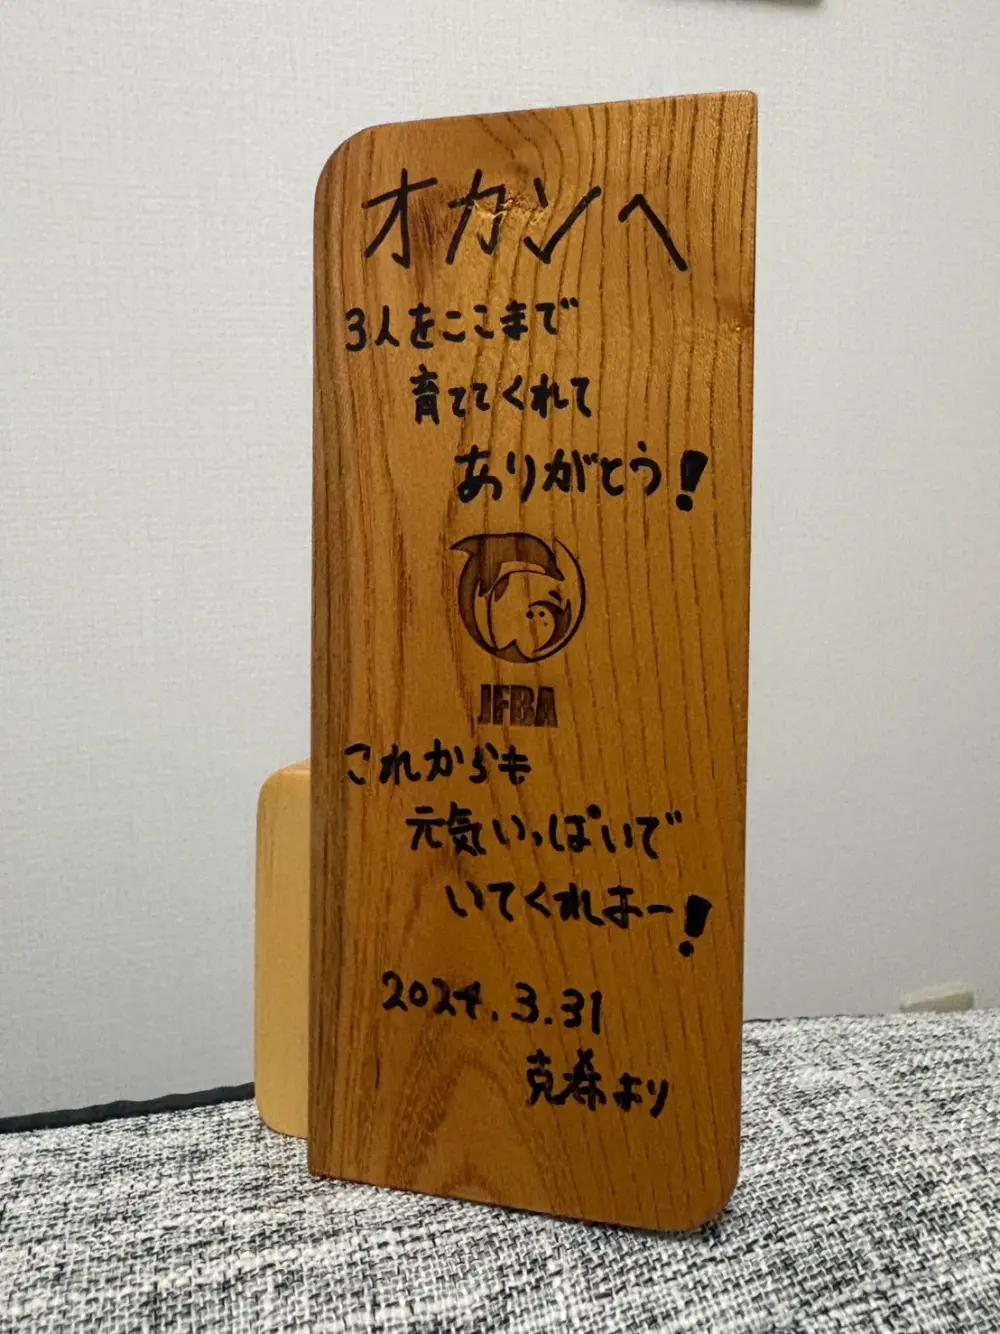 オカンへ
3人をここまで
育ててくれて
ありがとう!
JFBA
これからも
元気いっぱいで
いてくれよー!
2024.3.31
克希より